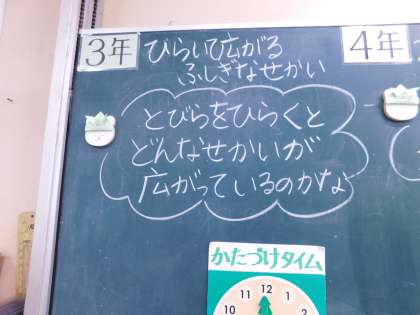 3年
ひらいて広がる
ふしぎなせかい
とびらをひらくと
どんなせかいが
広がっているのかな
4年
かたづけタイム
10 11 12 1 2